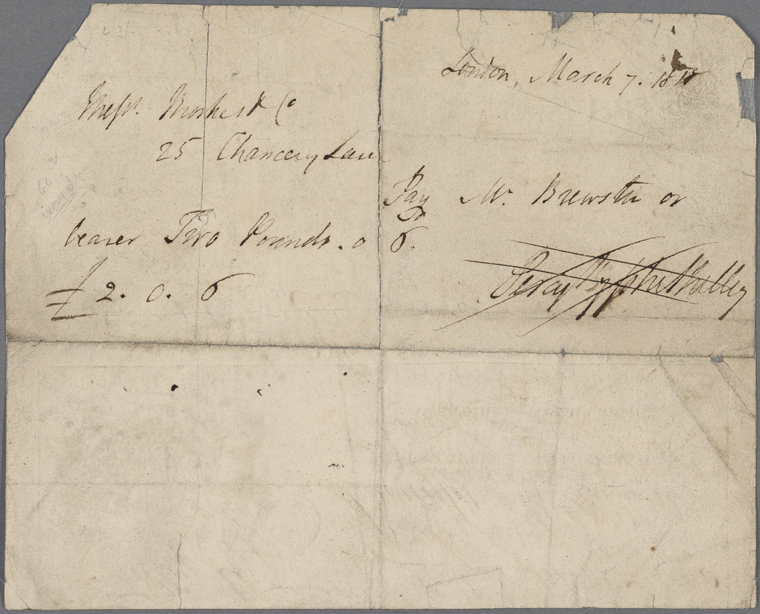 London, March 7. 1818
Messrs. Brookes & Co
25 Chancery Lane
Pay Mr. Brewster or
bearer Two Pounds. 0 6.
D
£2. 0. 6
Percy Bysshe Shelley